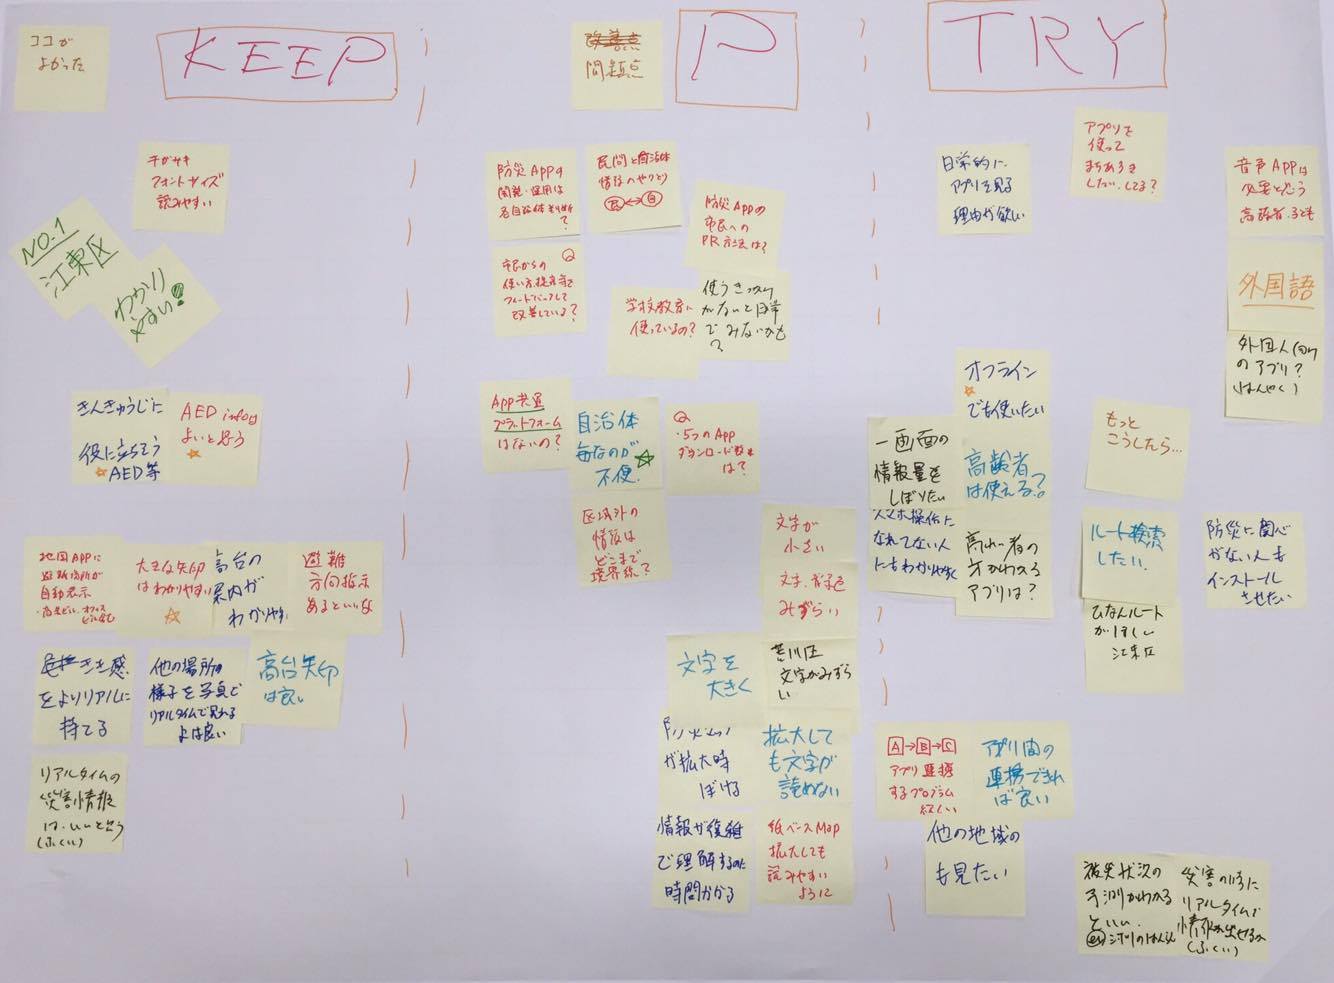 ココが
よかった
KEEP
チガサキ
フォントサイズ
読みやすい
NO.1
江東区
わかり
やすい!
きんきゅうじに
役に立ちそう
AED等
AED infoは
よいと思う
地図APPに
避難場所が
自動表示
大きな矢印
はわかりやすい
高台の
案内が
わかりやすい
避難
方向指示
あるといいな
をよりリアルに
持てる
他の場所の
様子を写真で
リアルタイムで見れる
のは良い
高台矢印
は良い
リアルタイムの
災害情報
は、いいと思う
(ふくい)
改善点
問題点
P
防災Appの
開発・運用は
各自治体
?
民間と自治体
情報のやりとり
民↔自
防災Appの
市民への
PR方法は?
Q
市民からの
使い方、提案等を
フィードバックして
改善している?
学校教育に
使っているの?
使うきっかけ
がないと日常
でみないかも
?
App共通
プラットフォーム
はないの?
自治体
毎なのが
不便.
Q
・5つのApp
ダウンロード数
は?
区域外の
情報は
どこまで
境界線?
文字が
小さい
文字、背景色
みずらい
文字を
大きく
荒川区
文字がみずら
い
が拡大時
ぼける
拡大して
も文字が
読めない
情報が複雑
で理解するのに
時間かかる
紙ベースMap
拡大しても
読みやすい
ように
TRY
日常的に
アプリを見る
理由が欲しい
アプリを
使って
まちあるき
したい、してる?
音声APPは
必要と思う
高齢者、子ども
外国語
外国人向け
のアプリ?
(ほんやく)
オフライン
でも使いたい
一画面の
情報量を
しぼりたい
高齢者
は使える?
スマホ操作に
なれてない人
にもわかりやすく
高れい者の
方がつかえる
アプリは?
もっと
こうしたら…
ルート検索
したい.
ひなんルート
がほしい
江東区
防災に関心
がない人も
インストール
させたい
A→B→C
アプリ連携
するプログラム
欲しい
アプリ間の
連携できれ
ば良い
他の地域の
も見たい
被災状況の
予測がわかる
といい.
災害のときに
リアルタイムで
情報が出せるか
(ふくい)